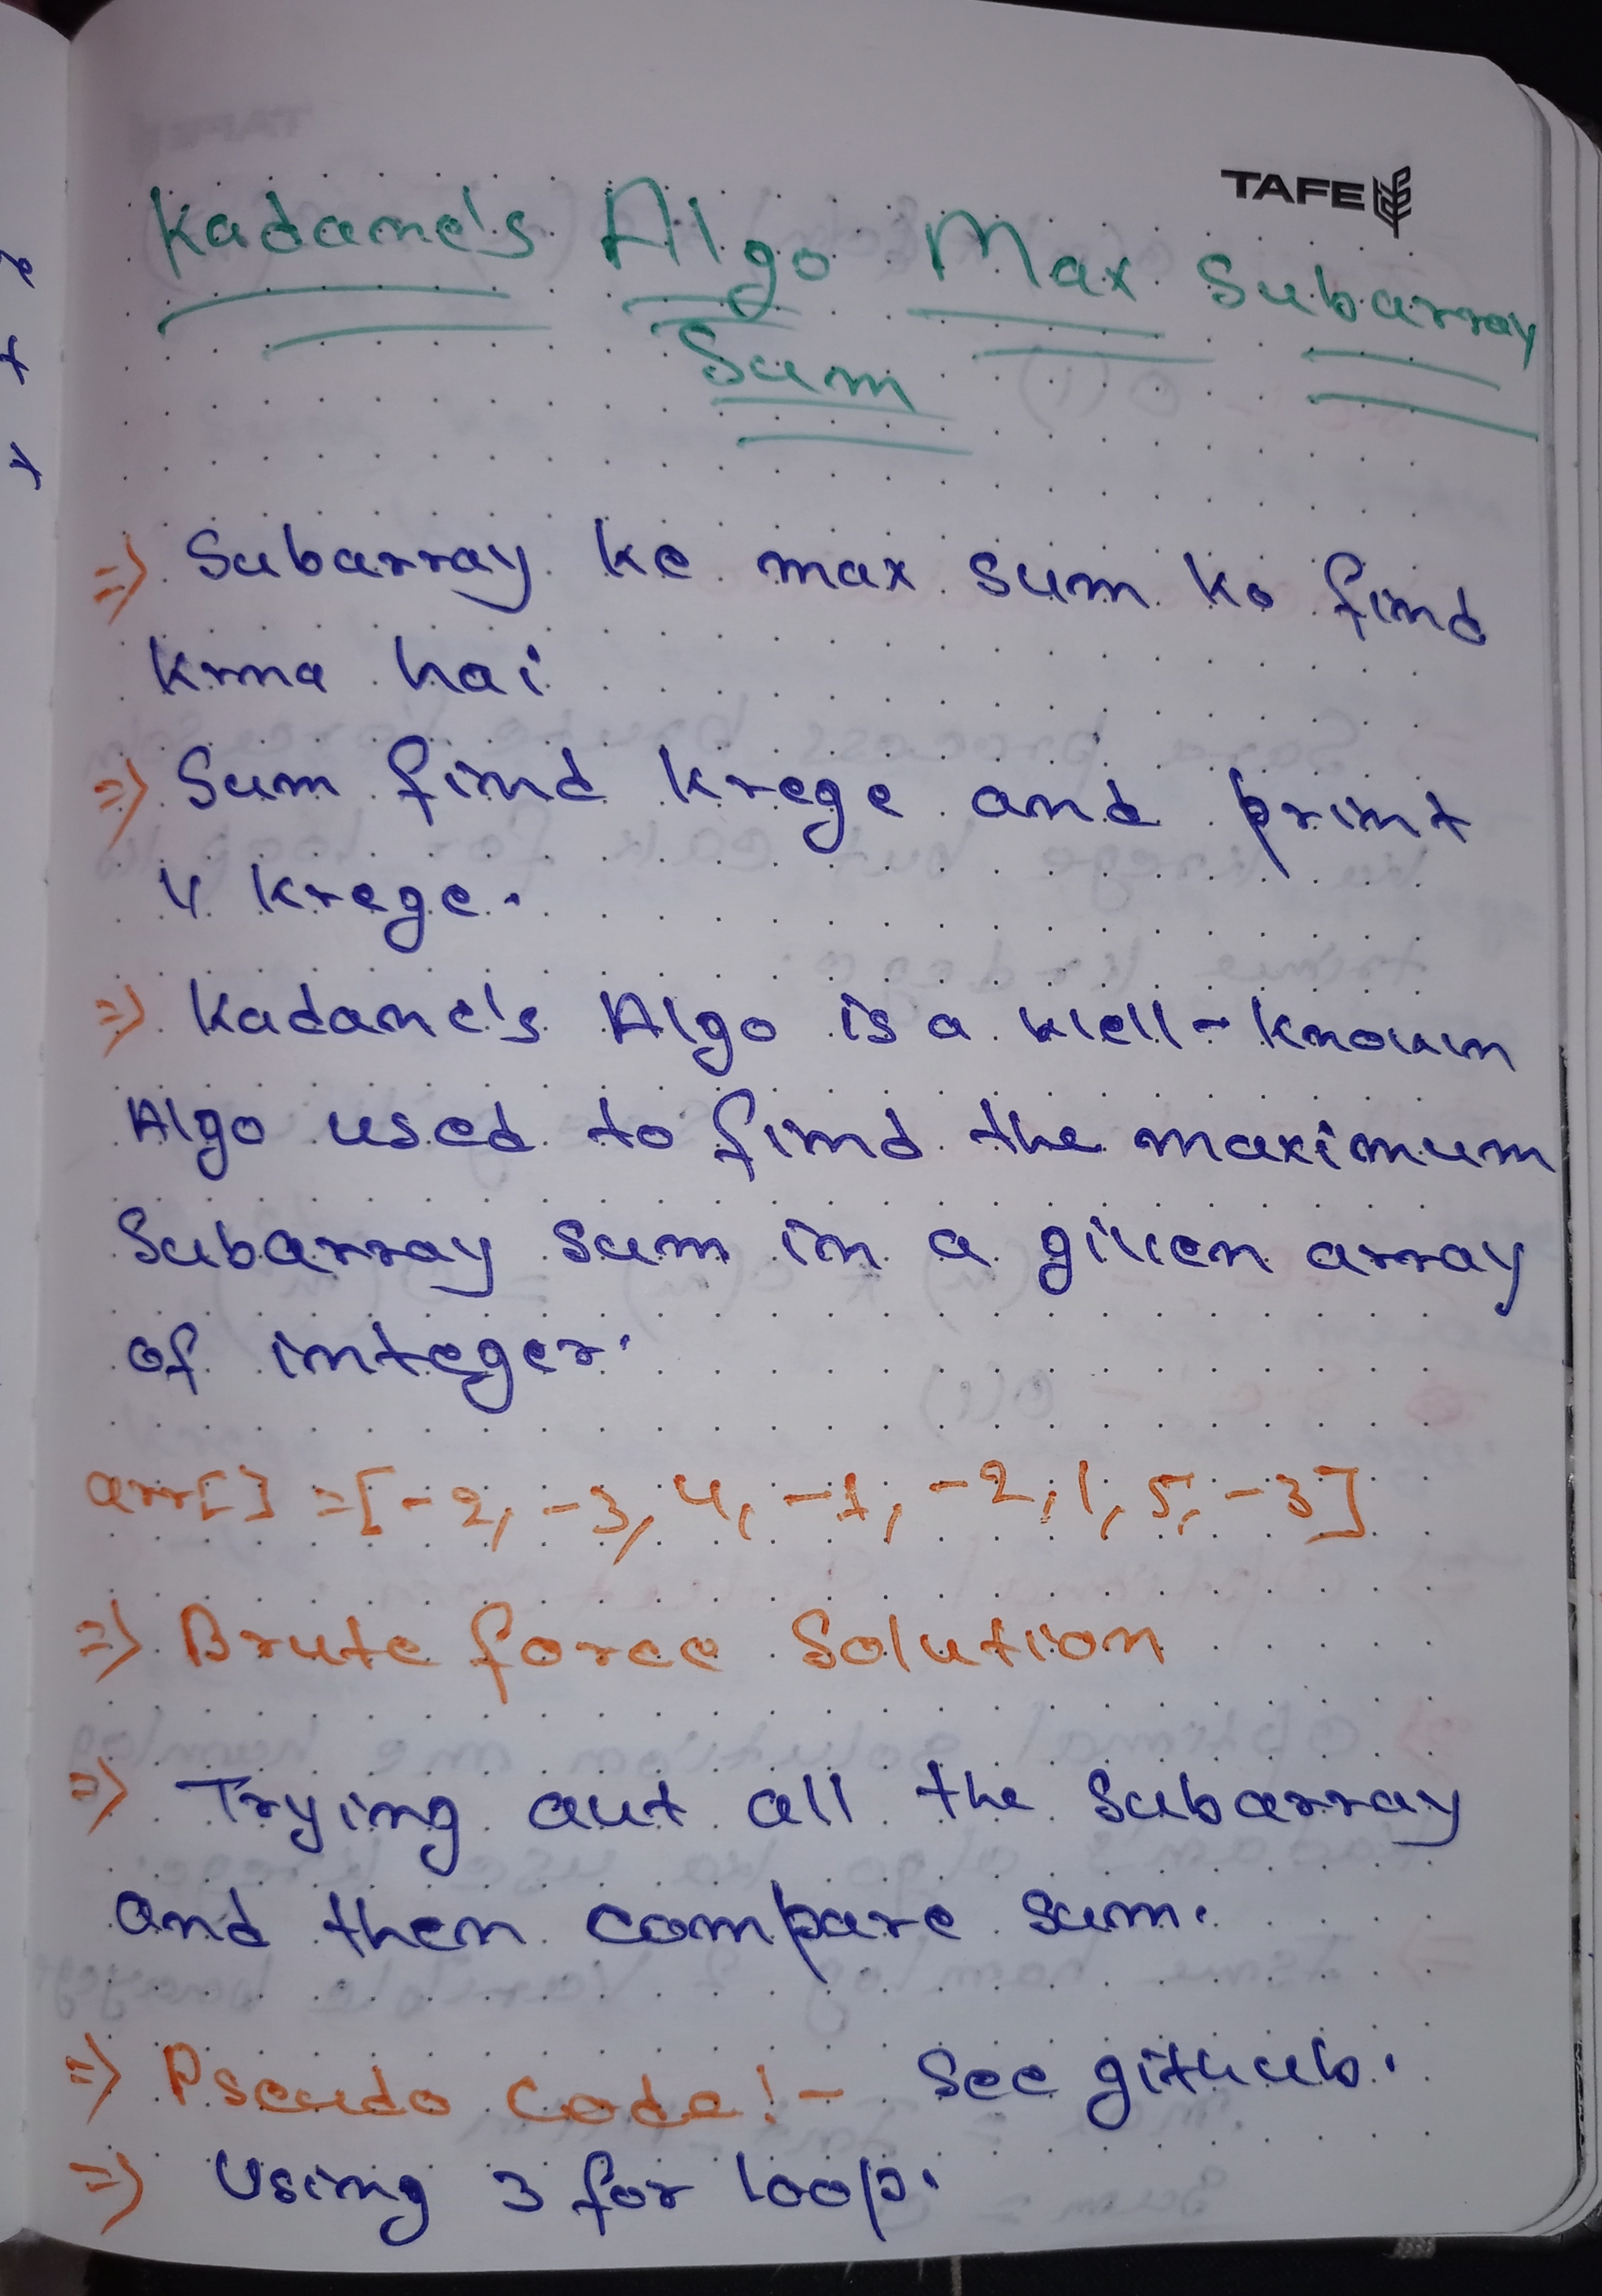 TAFE
Kadane's Algo Max Subarray
Sum
=> Subarray ke max sum ko find
krna hai
=> Sum find krege and print
v krege.
=> Kadane's Algo is a well-known
Algo used to find the maximum
Subarray sum in a given array
of integer.
arr[] = [-2, -3, 4, -1, -2, 1, 5, -3]
=> Brute force Solution
=> Trying out all the Subarray
and then compare sum.
=> Pseudo Code :- See github.
=> Using 3 for loop.